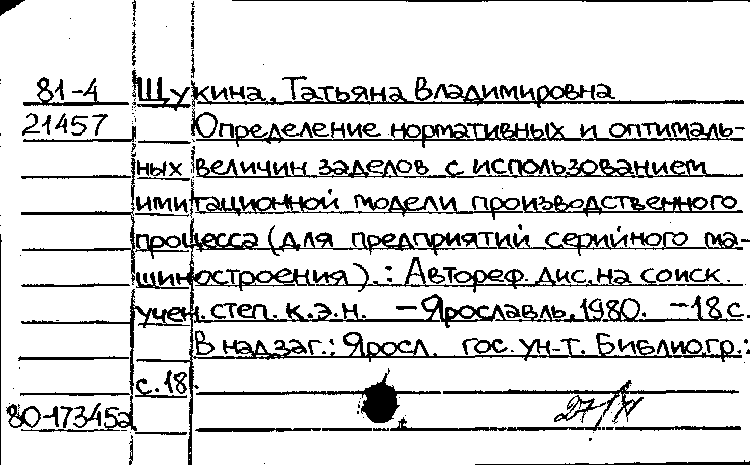 81-4 Щукина, Татьяна Владимировна
21457 Определение нормативных и оптималь-
ных величин заделов с использованием
имитационной модели производственного
процесса (для предприятий серийного ма-
шиностроения).: Автореф. дис. на соиск.
учен. степ. к.э.н. — Ярославль, 1980. — 18 с.
В надзаг.: Яросл. гос. ун-т. Библиогр.:
с. 18.
80-173452